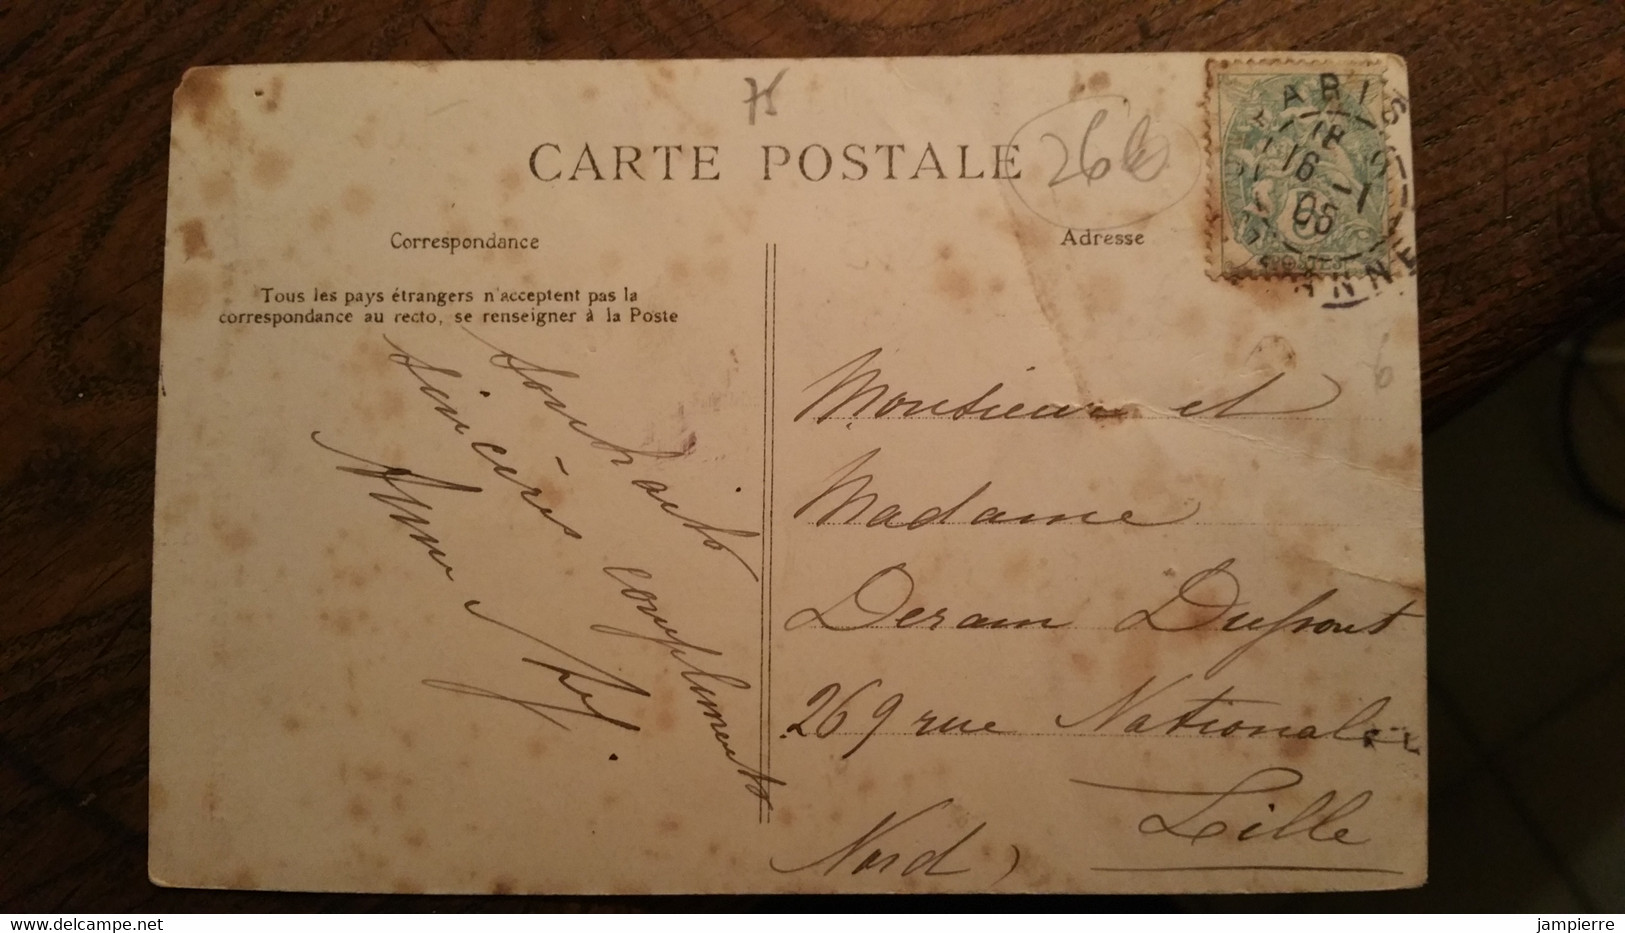 75
CARTE POSTALE
26
Correspondance
Adresse
Tous les pays étrangers n'acceptent pas la
correspondance au recto, se renseigner à la Poste
Souhaits
sincères compliments
Monsieur et
Madame
Derain Dufront
269 rue Nationale
Lille
Nord
PARIS
18
16 -1
06
POSTES
6
jampierre